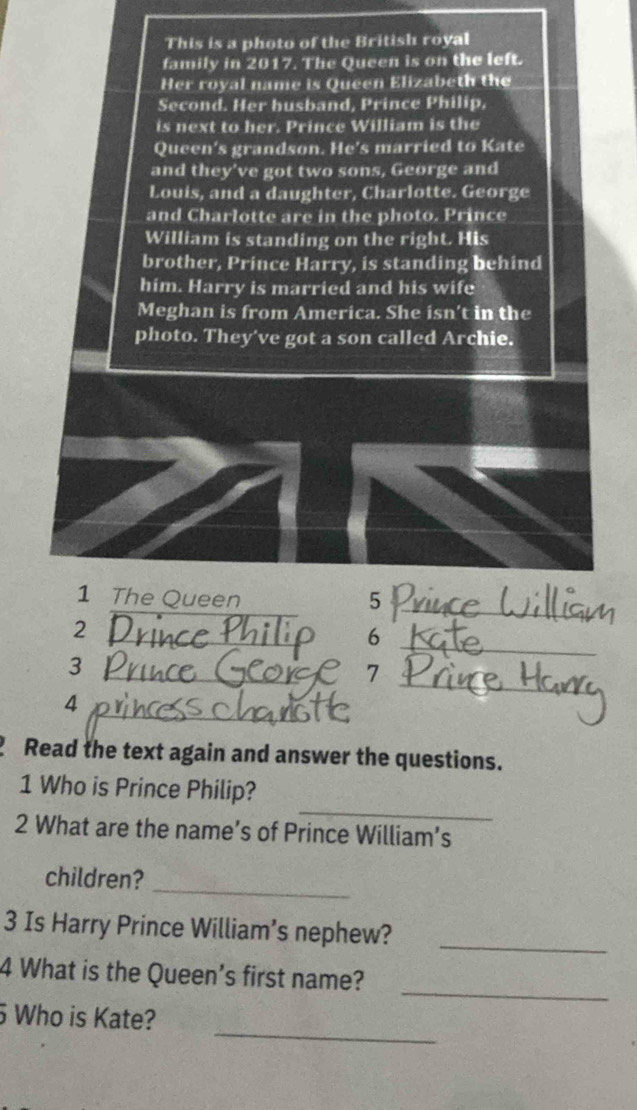 This is a photo of the British royal
family in 2017. The Queen is on the left.
Her royal name is Queen Elizabeth the
Second. Her husband, Prince Philip,
is next to her. Prince William is the
Queen's grandson. He's married to Kate
and they've got two sons, George and
Louis, and a daughter, Charlotte. George
and Charlotte are in the photo. Prince
William is standing on the right. His
brother, Prince Harry, is standing behind
him. Harry is married and his wife
Meghan is from America. She isn't in the
photo. They've got a son called Archie.
1 The Queen
5 Prince William
2 Prince Philip
6 Kate
3 Prince George
7 Prince Harry
4 princess charlotte
2 Read the text again and answer the questions.
1 Who is Prince Philip?
2 What are the name's of Prince William's
children?
3 Is Harry Prince William's nephew?
4 What is the Queen's first name?
5 Who is Kate?